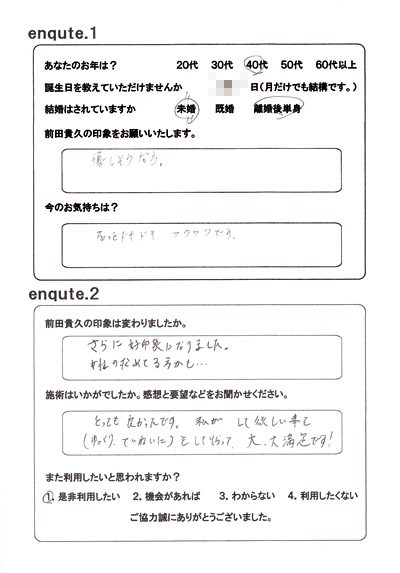 enqute.1
あなたのお年は？ 20代 30代 40代 50代 60代以上
誕生日を教えていただけませんか 日(月だけでも結構です。)
結婚はされていますか 未婚 既婚 離婚後単身
前田貴久の印象をお願いいたします。
優しそうな方。
今のお気持ちは？
ドキドキ ワクワクです。
enqute.2
前田貴久の印象は変わりましたか。
さらに好印象になりました。
女性の求めてる方かも…
施術はいかがでしたか。感想と要望などをお聞かせください。
とっても良かったです。私が して欲しい事を
(ゆっくり、ていねいに)をして もらって、大、大満足です!
また利用したいと思われますか？
1. 是非利用したい 2. 機会があれば 3. わからない 4. 利用したくない
ご協力誠にありがとうございました。